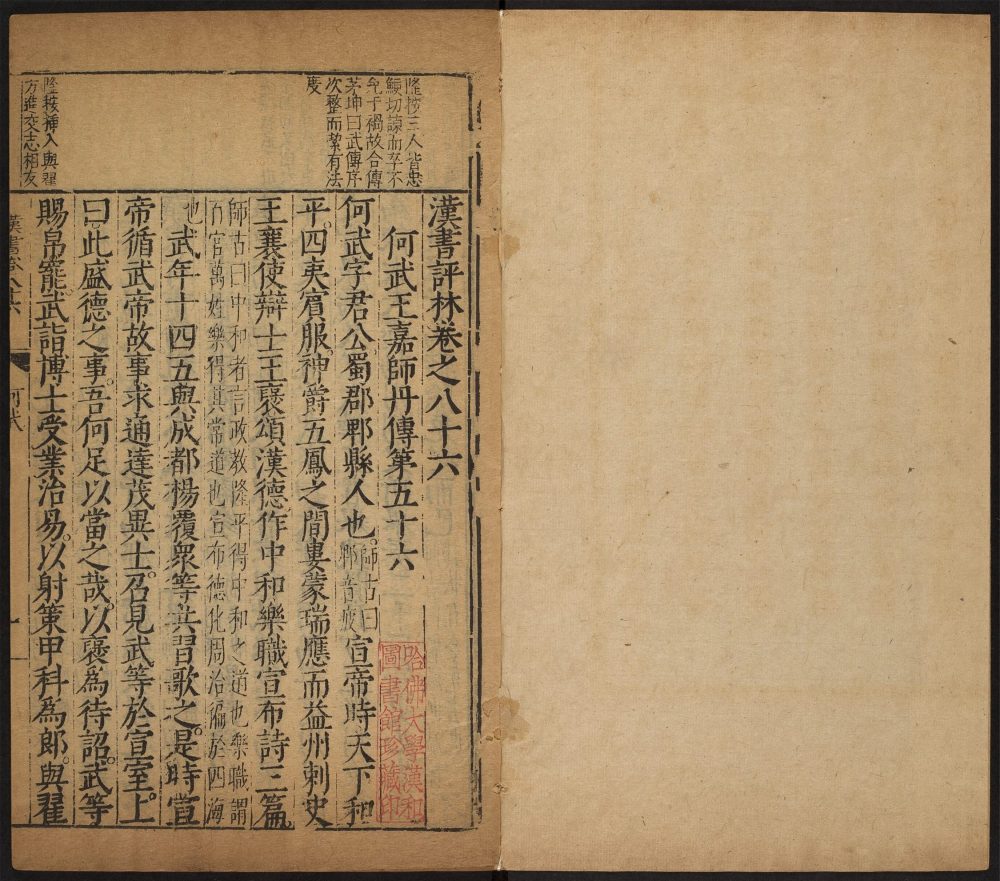 隆按三人皆忠
鯁切諫而卒不
免于禍故合傳
茅坤曰武傳序
次整而絜有法
度
隆按揷入與翟
方進交志相友
漢書評林卷之八十六
何武王嘉師丹傳第五十六
何武字君公蜀郡郫縣人也師古曰郫音疲宣帝時天下和
平四夷賓服神爵五鳳之間婁蒙瑞應而益州刺史
王襄使辯士王襃頌漢德作中和樂職宣布詩三篇
師古曰中和者言政教隆平得中和之道也樂職謂
百官萬姓樂得其常道也宣布德化周洽徧於四海
也武年十四五與成都楊覆衆等共習歌之是時宣
帝循武帝故事求通達茂異士召見武等於宣室上
曰此盛德之事吾何足以當之哉以襃爲待詔武等
賜帛罷武詣博士受業治易以射策甲科爲郎與翟
漢書卷八十六
何武
一
哈佛大學漢和
圖書館珍藏印